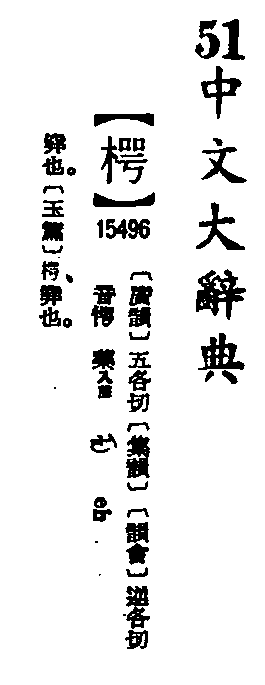 51
中文大辭典
【樗】
15496
〔廣韻〕五各切〔集韻〕〔韻會〕逆各切
音愕 藥入聲
ㄜˋ eh
也。〔玉篇〕
也。